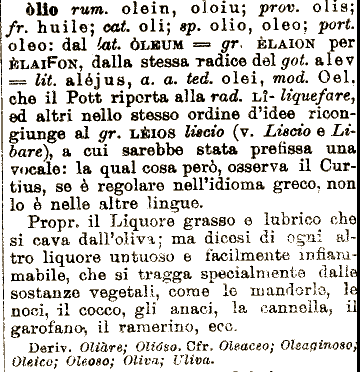 òlio rum. olein, oloiu; prov. olis;
fr. huile; cat. oli; sp. olio, oleo; port.
oleo: dal lat. ÒLEUM = gr. ÈLAION per
ÈLAIFON, dalla stessa radice del got. alev
= lit. aléjus, a. a. ted. olei, mod. Oel.
che il Pott riporta alla rad. LÎ- liquefare,
ed altri nello stesso ordine d'idee ricon-
giunge al gr. LÈIOS liscio (v. Liscio e Li-
bare), a cui sarebbe stata prefissa una
vocale: la qual cosa però, osserva il Cur-
tius, se è regolare nell'idioma greco, non
lo è nelle altre lingue.
Propr. il Liquore grasso e lubrico che
si cava dall'oliva; ma dicesi di ogni al-
tro liquore untuoso e facilmente infiam-
mabile, che si tragga specialmente dalle
sostanze vegetali, come le mandorle, le
noci, il cocco, gli anaci, la cannella, il
garofano, il ramerino, ecc.
Deriv. Oliàre; Olióso. Cfr. Oleaceo; Oleaginoso;
Oleico; Oleoso; Oliva; Uliva.